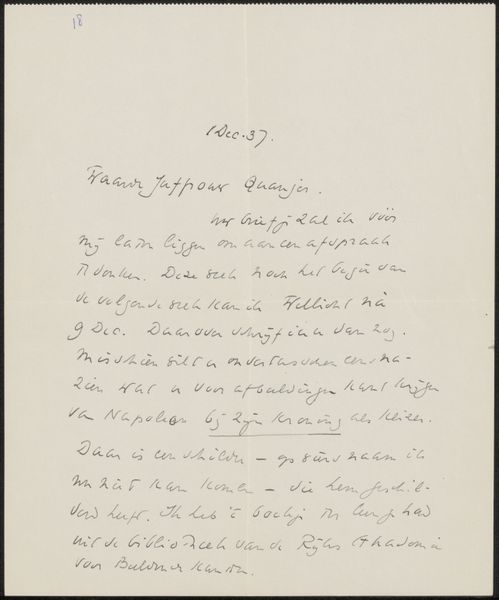 18
1 Dec. 37.
Waarde Juffrouw Quanjer.
Uw briefje zal ik vóór
mij laten liggen om aan een afspraak
te denken. Deze week noch het begin van
de volgende week kan ik. Wellicht na
9 Dec. Daarover schrijf ik u dan nog.
Misschien wilt u ondertusschen eens na-
zien wat u voor afbeeldingen kunt krijgen
van Napoleon bij zijn Kroning als Keizer.
Daar is een schilder – op wiens naam ik
nu niet kan komen – die hem geschil-
derd heeft. Ik heb 't boekje ter leen gehad
uit de bibliotheek van de Rijks Akademie
voor Beeldende Kunsten.